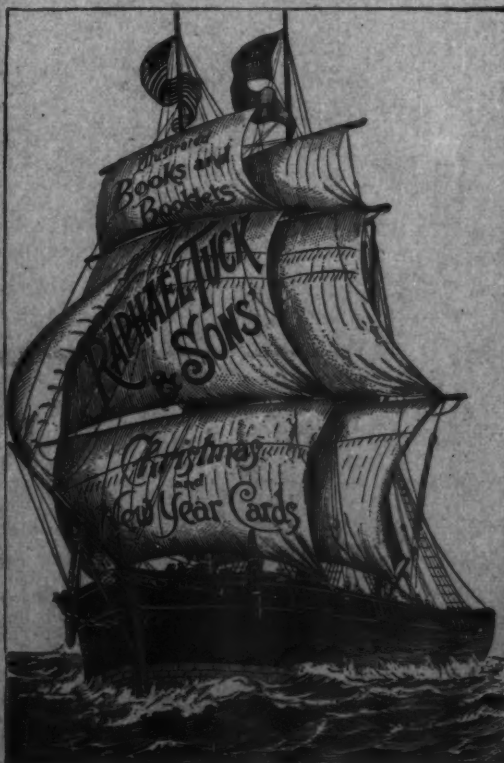 Illustrated
Books and
Booklets
RAPHAEL TUCK
& SONS'
Christmas
and
New Year Cards